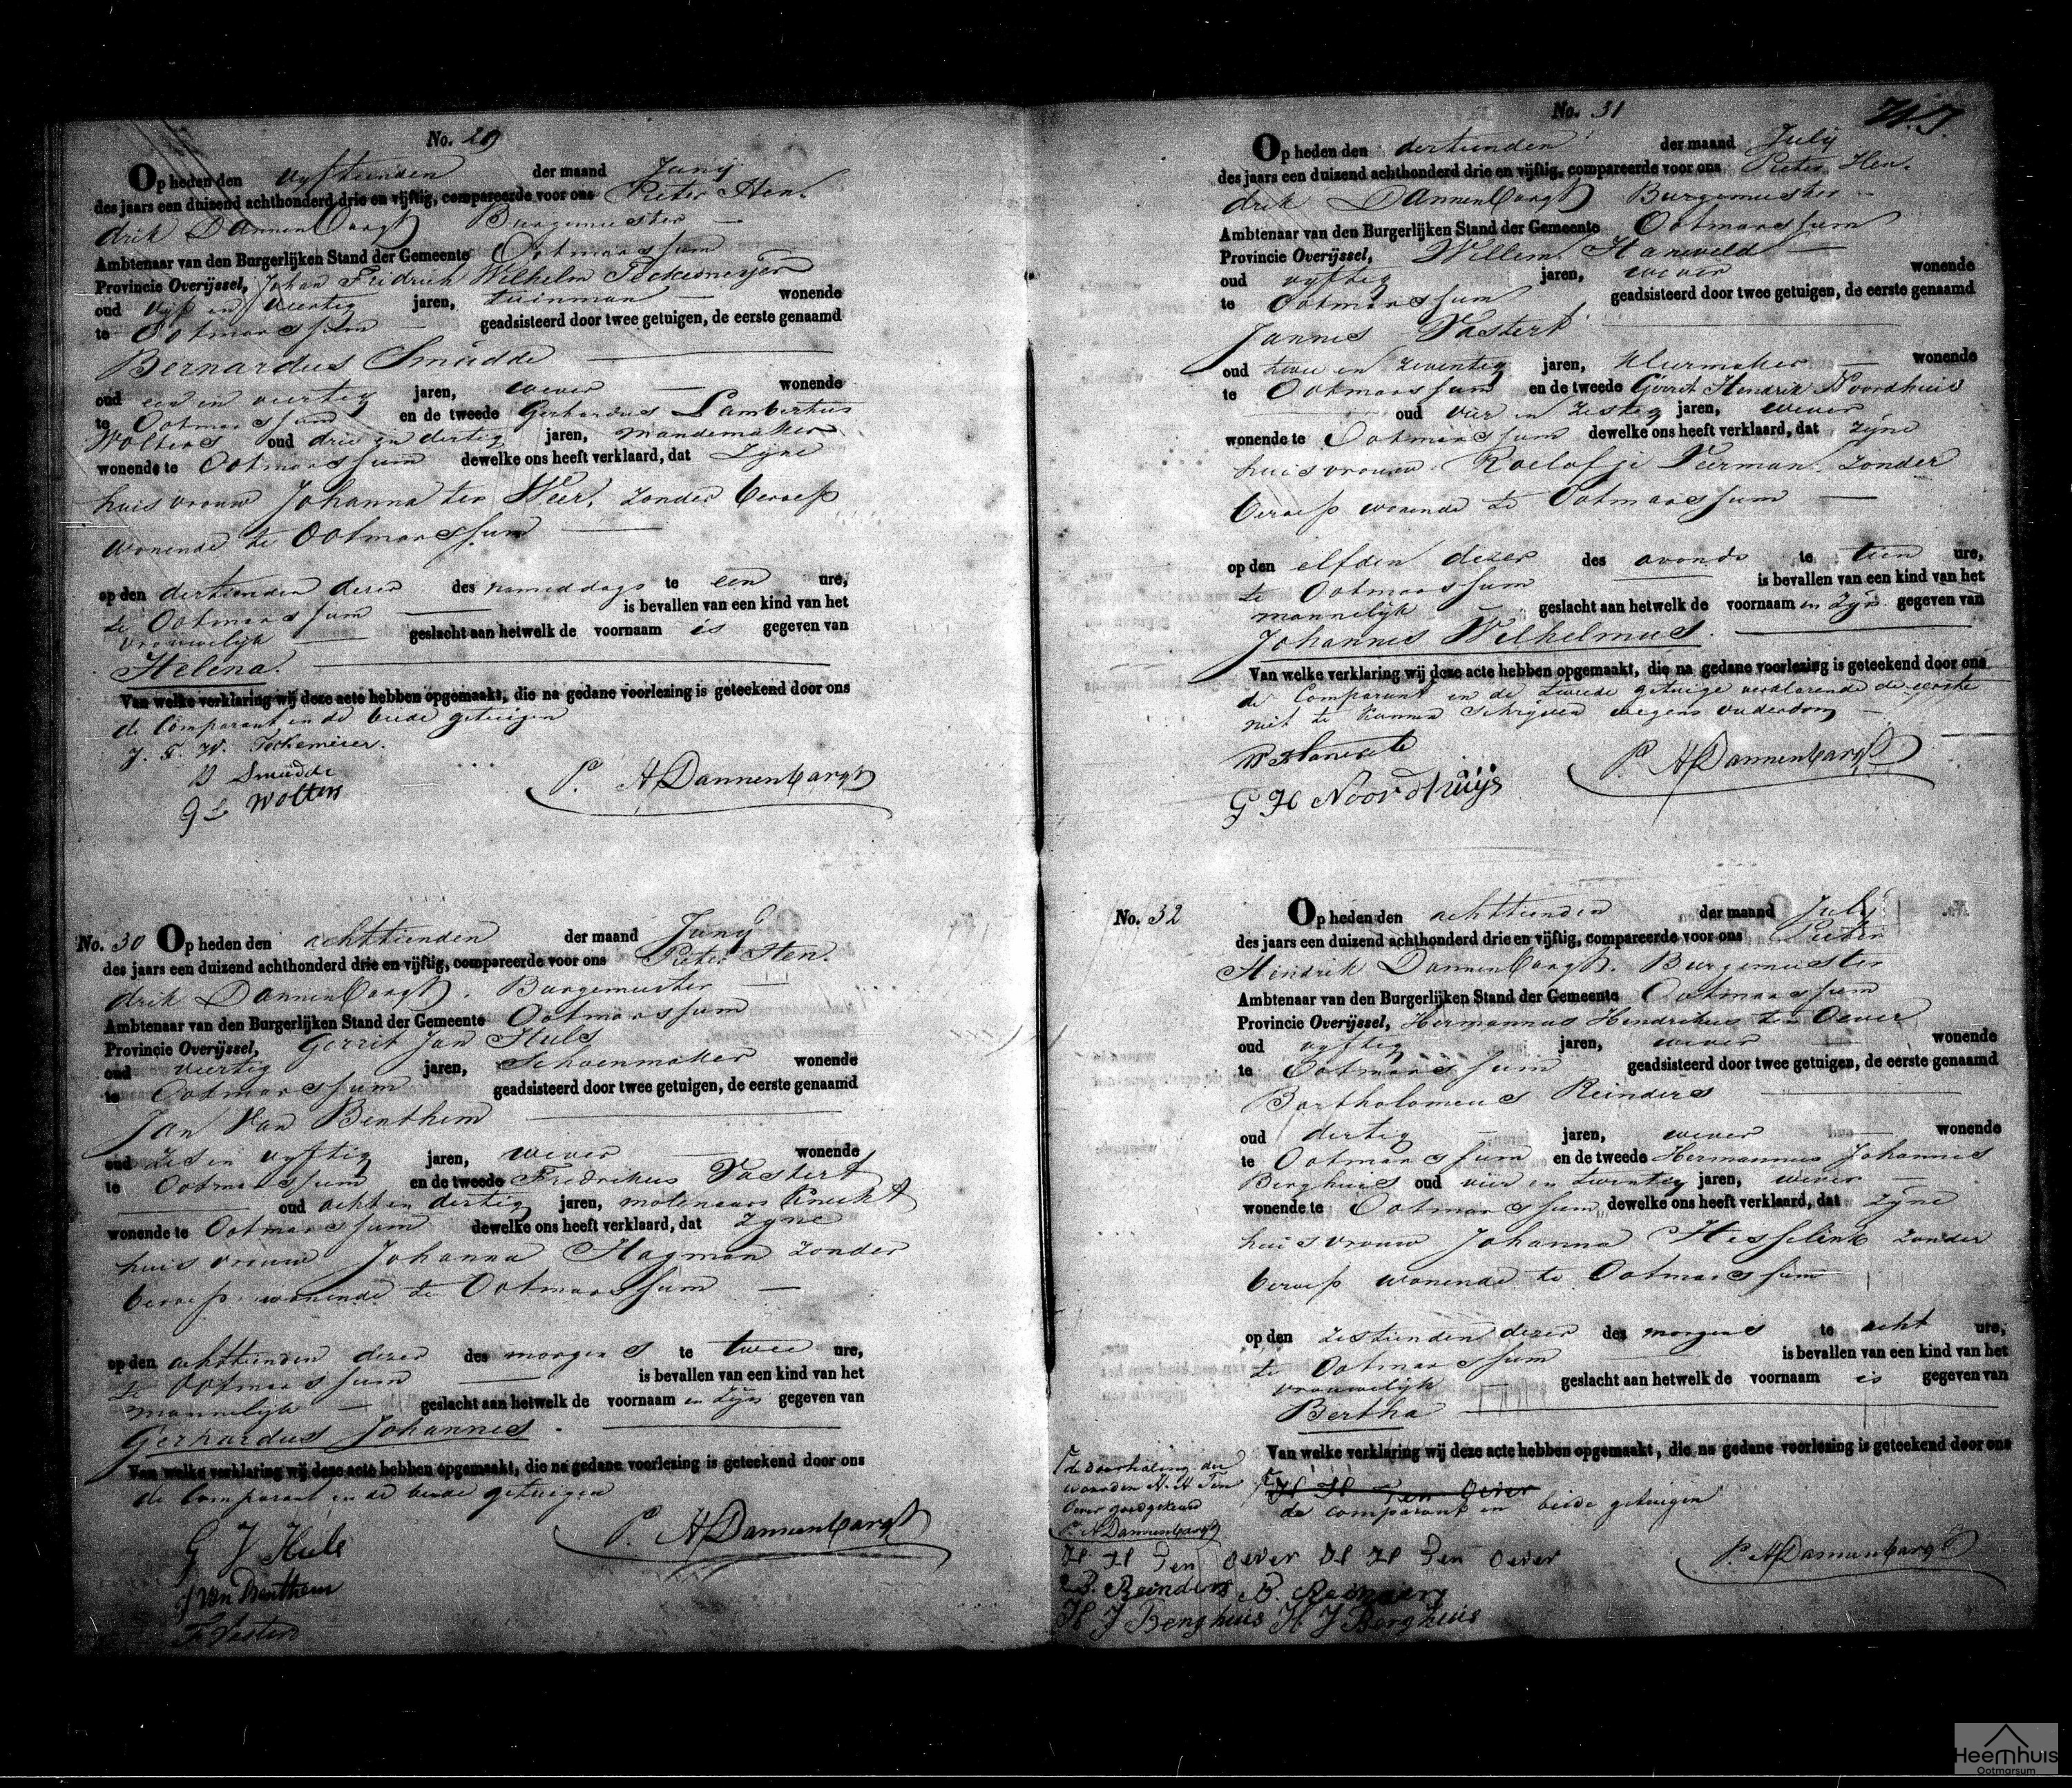 No. 29
Op heden den vyftienden der maand Juny
des jaars een duizend achthonderd drie en vijftig, compareerde voor ons Pieter Hen-
drik Dannenbargh Burgemeester
Ambtenaar van den Burgerlijken Stand der Gemeente Ootmarssum
Provincie Overijssel, Johan Fridrich Wilhelm
oud vyf en veertig jaren, tuinman wonende
te Ootmarssum geadsisteerd door twee getuigen, de eerste genaamd
Bernardus Smudde
oud een en veertig jaren, wever wonende
te Ootmarssum en de tweede Gerhardus Lambertus
Wolters oud drie en dertig jaren, mandemaker
wonende te Ootmarssum dewelke ons heeft verklaard, dat zyne
huisvrouw Johanna ter Weer, zonder beroep
wonende te Ootmarssum
op den dertienden dezer des nameddags te een ure,
te Ootmarssum is bevallen van een kind van het
vrouwelyk geslacht aan hetwelk de voornaam is gegeven van
Helena.
Van welke verklaring wij deze acte hebben opgemaakt, die na gedane voorlezing is geteekend door ons
de Comparant en de beide getuigen
J. F. W.
B Smudde
G L Wolters
P. H Dannenbargh
No. 30 Op heden den achttienden der maand Juny
des jaars een duizend achthonderd drie en vijftig, compareerde voor ons Pieter Hen-
drik Dannenbargh. Burgemeester
Ambtenaar van den Burgerlijken Stand der Gemeente Ootmarssum
Provincie Overijssel, Gerrit Jan Huls
oud veertig jaren, Schoenmaker wonende
te Ootmarssum geadsisteerd door twee getuigen, de eerste genaamd
Jan Van Benthem
oud zes en vyftig jaren, wever wonende
te Ootmarssum en de tweede Fredrikus Vastert
oud acht en dertig jaren, molenaars knecht
wonende te Ootmarssum dewelke ons heeft verklaard, dat zyne
huisvrouw Johanna Hagman zonder
beroep wonende te Ootmarssum
op den achttienden dezer des morgens te twee ure,
te Ootmarssum is bevallen van een kind van het
mannelyk geslacht aan hetwelk de voornaam en zyn gegeven van
Gerhardus Johannes.
Van welke verklaring wij deze acte hebben opgemaakt, die na gedane voorlezing is geteekend door ons
de Comparant en de beide getuigen
G J Huls
J van Benthem
F Vastert
P. H Dannenbargh
No. 31
Op heden den dertienden der maand July
des jaars een duizend achthonderd drie en vijftig, compareerde voor ons Pieter Hen-
drik Dannenbargh Burgemeester
Ambtenaar van den Burgerlijken Stand der Gemeente Ootmarssum
Provincie Overijssel, Willem Haneveld
oud vyftig jaren, wever wonende
te Ootmarssum geadsisteerd door twee getuigen, de eerste genaamd
Jannes Vastert
oud twee en zeventig jaren, kleermaker wonende
te Ootmarssum en de tweede Gerrit Hendrik Noordhuis
oud vier en zestig jaren, wever
wonende te Ootmarssum dewelke ons heeft verklaard, dat zyne
huisvrouw Roelofje Veerman. zonder
beroep wonende te Ootmarssum
op den elfden dezer des avonds te tien ure,
te Ootmarssum is bevallen van een kind van het
mannelyk geslacht aan hetwelk de voornaam en zyn gegeven van
Johannes Wilhelmus.
Van welke verklaring wij deze acte hebben opgemaakt, die na gedane voorlezing is geteekend door ons
de Comparant en de tweede getuige verklarende de eerste
niet te kunnen schrijven wegens ouderdom
G H Noordhuijs
P. H Dannenbargh
No. 32 Op heden den achttienden der maand July
des jaars een duizend achthonderd drie en vijftig, compareerde voor ons Pieter
Hendrik Dannenbargh. Burgemeester
Ambtenaar van den Burgerlijken Stand der Gemeente Ootmarssum
Provincie Overijssel, Hermannus Hendrikus ten Oever
oud vyftig jaren, wever wonende
te Ootmarssum geadsisteerd door twee getuigen, de eerste genaamd
Bartholomeus Reinders
oud dertig jaren, wever wonende
te Ootmarssum en de tweede Hermannus Johannes
Berghuis oud vier en twentig jaren, wever
wonende te Ootmarssum dewelke ons heeft verklaard, dat zyne
huisvrouw Johanna Hesselink zonder
beroep wonende te Ootmarssum
op den zestienden dezer des morgens te acht ure,
te Ootmarssum is bevallen van een kind van het
vrouwelyk geslacht aan hetwelk de voornaam is gegeven van
Bertha
Van welke verklaring wij deze acte hebben opgemaakt, die na gedane voorlezing is geteekend door ons
H H Ten Oever
de comparant en beide getuigen
de doorhaling der
woorden H. H Ten
Oever goedgekeurd
P. H Dannenbargh
H H Ten Oever H H Ten Oever
B. Reinders B. Reinders
H J Berghuis H J Berghuis
P. H Dannenbargh
Heemhuis
Ootmarsum